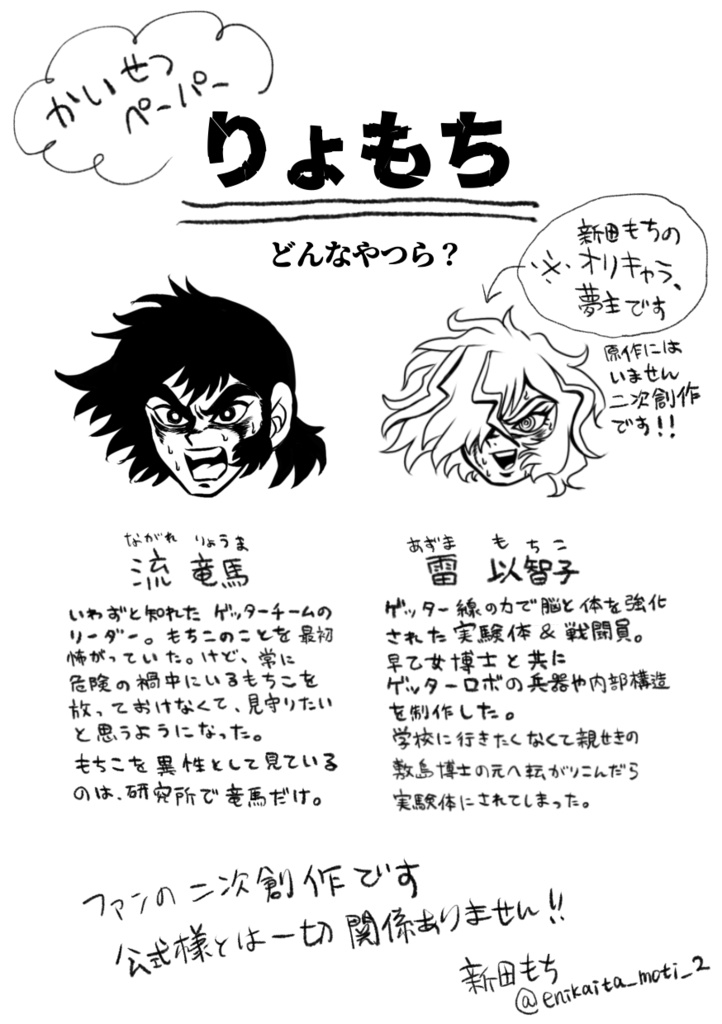 かいせつ
ペーパー
りょもち
どんなやつら？
新田もちの
※オリキャラ、
夢主です
原作には
いません
二次創作
です!!
ながれ りょうま
流 竜馬
いわずと知れた ゲッターチームの
リーダー。もちこのことを最初
怖がっていた。けど、常に
危険の禍中にいるもちこを
放っておけなくて、見守りたい
と思うようになった。
もちこを異性として見ている
のは、研究所で竜馬だけ。
あずま もちこ
雷 以智子
ゲッター線の力で脳と体を強化
された実験体&戦闘員。
早乙女博士と共に
ゲッターロボの兵器や内部構造
を制作した。
学校に行きたくなくて親せきの
敷島博士の元へ転がりこんだら
実験体にされてしまった。
ファンの二次創作です
公式様とは一切関係ありません!!
新田もち
@enikaita_moti_2